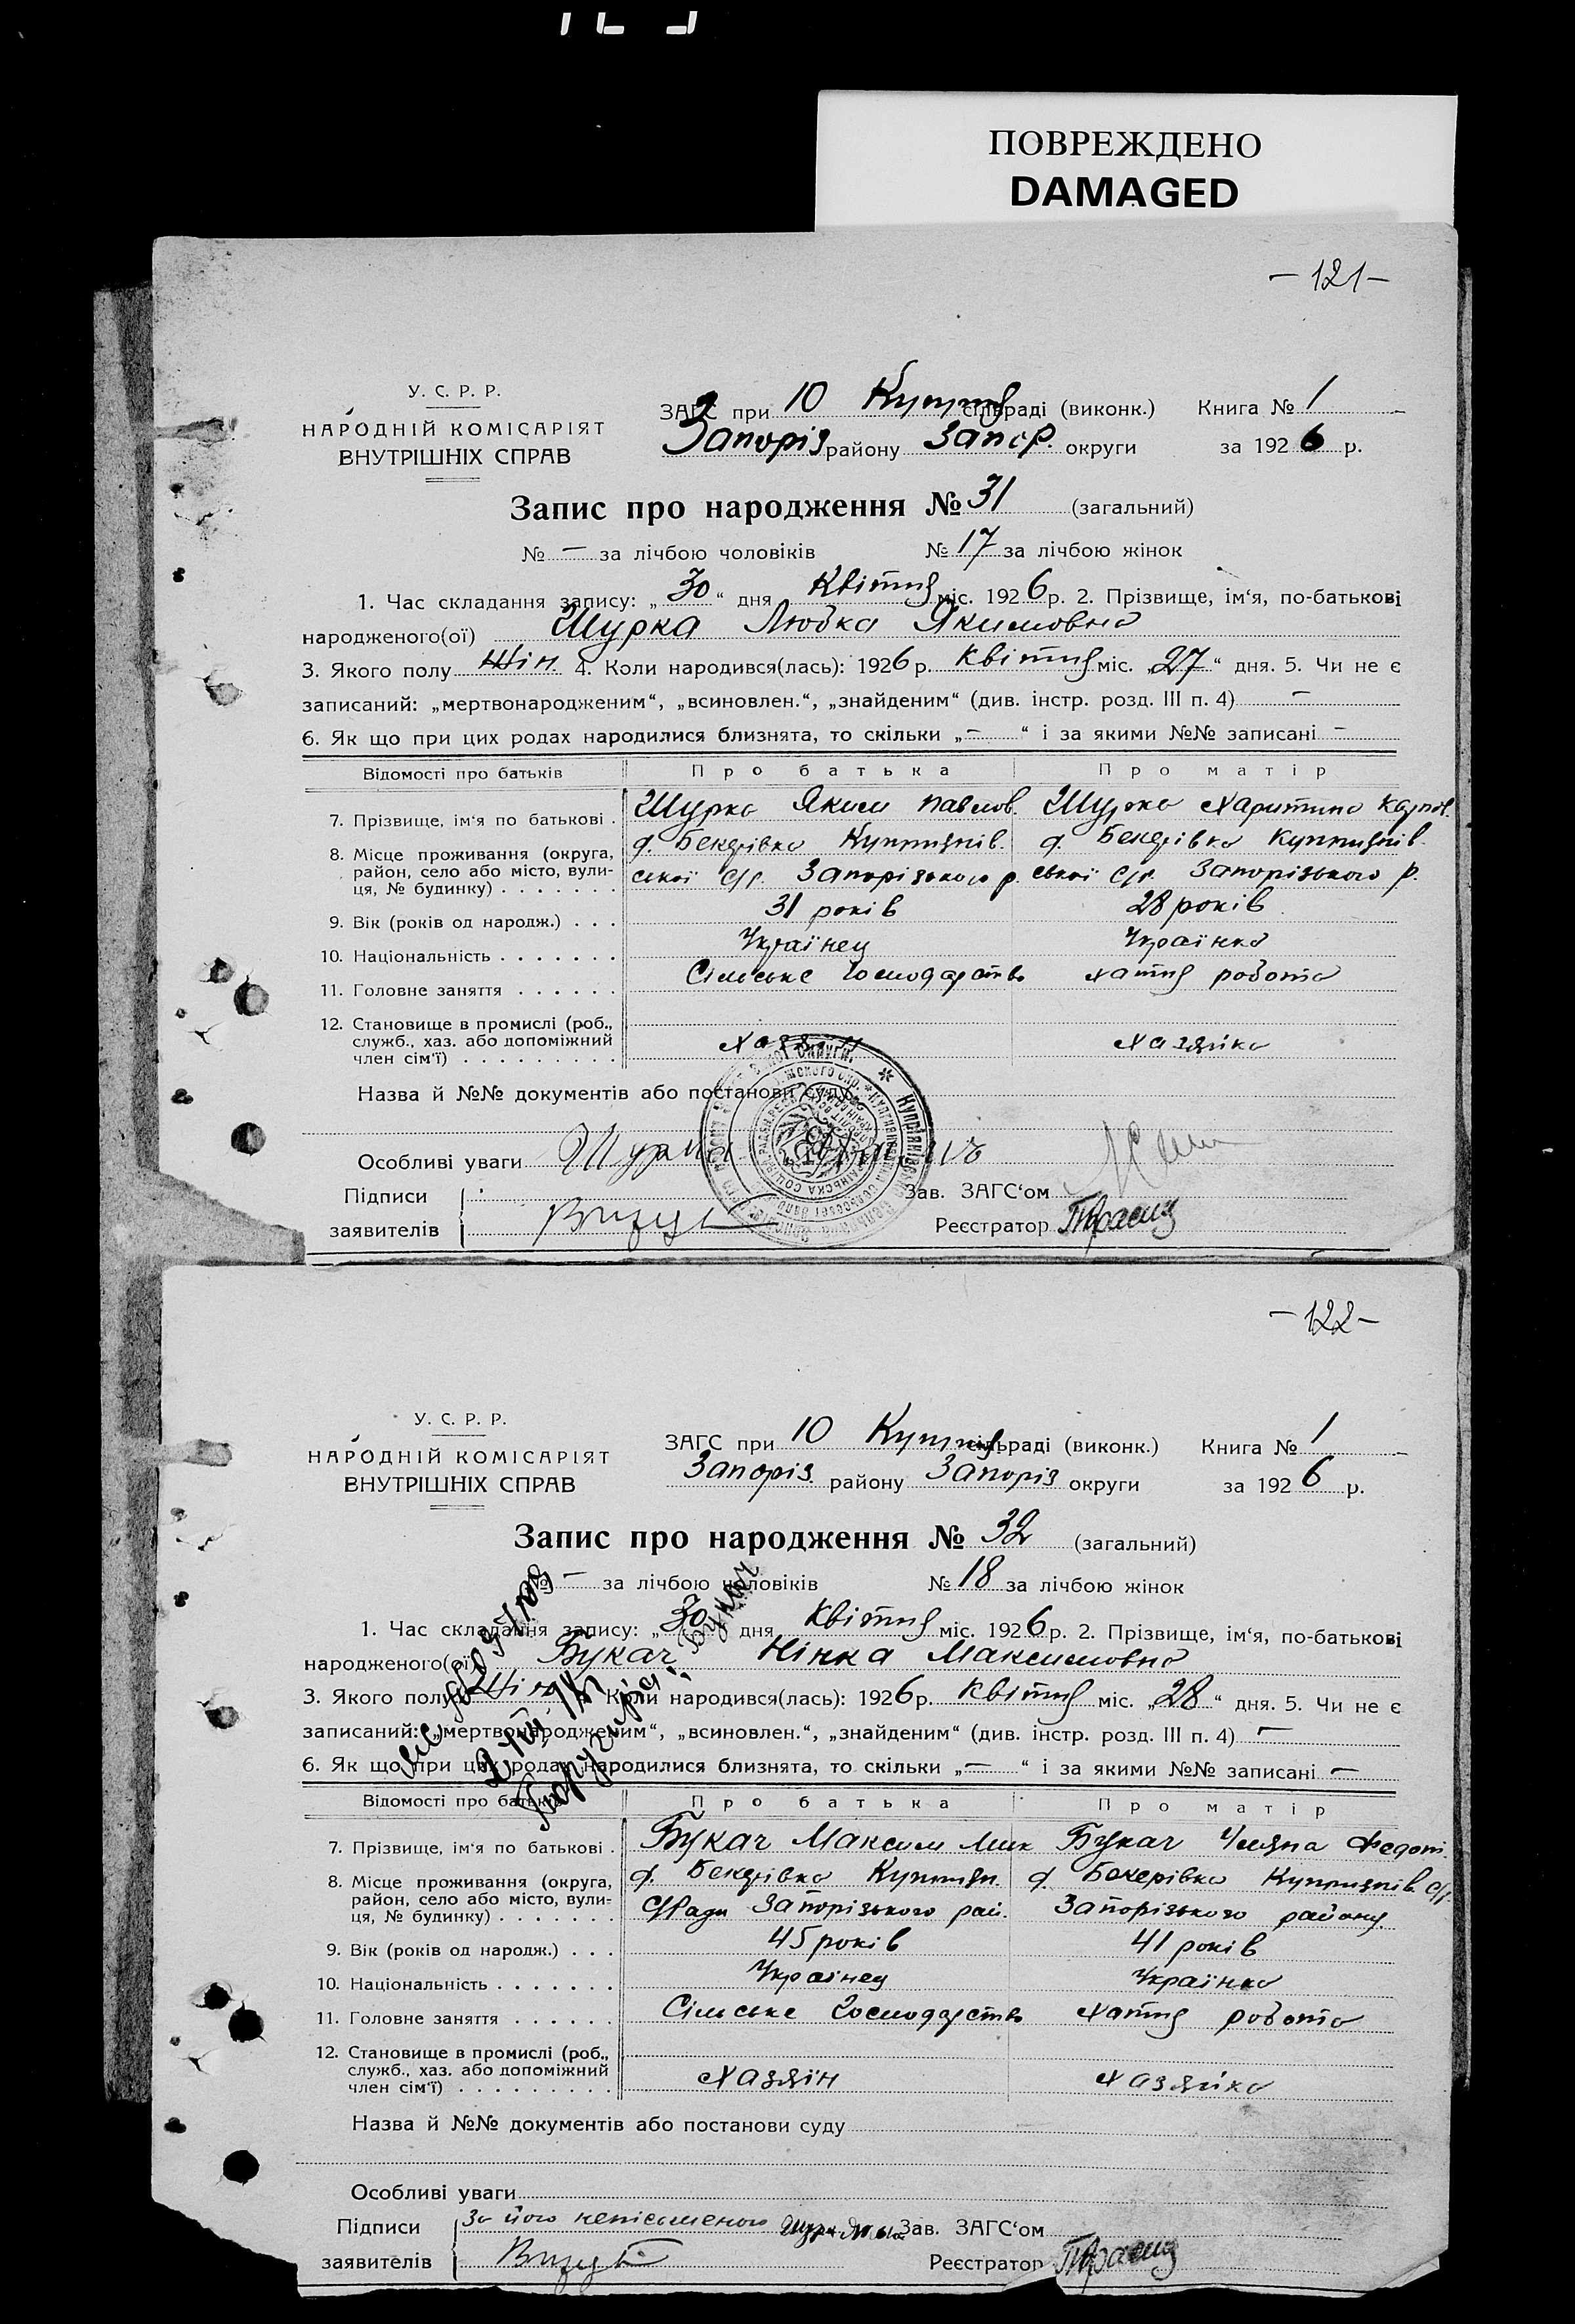 ПОВРЕЖДЕНО
DAMAGED
– 121 –
У. С. Р. Р.
НАРОДНІЙ КОМІСАРІЯТ
ВНУТРІШНІХ СПРАВ
ЗАГС при 10 сільраді (виконк.) Книга № 1
Запоріз району Запор. округи за 1926 р.
Запис про народження № 31 (загальний)
№ — за лічбою чоловіків № 17 за лічбою жінок
1. Час складання запису: „30“ дня Квітня міс. 1926 р. 2. Прізвище, ім‘я, по-батькові
народженого(ої) Шурка Любка Якимовна
3. Якого полу Жін. 4. Коли народився(лась): 1926 р. Квітня міс. „27“ дня. 5. Чи не є
записаний: „мертвонародженим“, „всиновлен.“, „знайденим“ (див. інстр. розд. III п. 4) —
6. Як що при цих родах народилися близнята, то скільки „—“ і за якими №№ записані —
Відомості про батьків Про батька Про матір
7. Прізвище, ім‘я по батькові . Шурка Яким Павлов. Шурка Харитина Карпов.
8. Місце проживання (округа, район, село або місто, вулиця, № будинку) . . . . . . .
д. Бекерівка Куприянів. д. Бекерівка Куприянів.
ської с/р. Запорізького р. ської с/р. Запорізького р.
9. Вік (років од народж.) . . . 31 років 28 років
10. Національність . . . . . . . Українец Українка
11. Головне заняття . . . . . . Сільське Господарство хатня робота
12. Становище в промислі (роб., служб., хаз. або допоміжний член сім‘ї) . . . . . . . . . Хазяін Хазяйка
Назва й №№ документів або постанови суду
Особливі уваги Шурка
Підписи Зав. ЗАГС‘ом
заявителів Реєстратор
– 122 –
У. С. Р. Р.
НАРОДНІЙ КОМІСАРІЯТ
ВНУТРІШНІХ СПРАВ
ЗАГС при 10 сільраді (виконк.) Книга № 1
Запоріз. району Запоріз округи за 1926 р.
Запис про народження № 32 (загальний)
№ — за лічбою чоловіків № 18 за лічбою жінок
1. Час складання запису: „30“ дня Квітня міс. 1926 р. 2. Прізвище, ім‘я, по-батькові
народженого(ої) Букач Нінка Максимовна
3. Якого полу Жін. 4. Коли народився(лась): 1926 р. Квітня міс. „28“ дня. 5. Чи не є
записаний: „мертвонародженим“, „всиновлен.“, „знайденим“ (див. інстр. розд. III п. 4) —
6. Як що при цих родах народилися близнята, то скільки „—“ і за якими №№ записані —
Відомості про батьків Про батька Про матір
7. Прізвище, ім‘я по батькові . Букач Максим Мик Букач Уляна Федот.
8. Місце проживання (округа, район, село або місто, вулиця, № будинку) . . . . . . .
д. Бекерівка Куприян. д. Бекерівка Куприянів. с/р.
с/Ради Запорізького рай. Запорізького району
9. Вік (років од народж.) . . . 45 років 41 років
10. Національність . . . . . . . Українец Українка
11. Головне заняття . . . . . . Сільське Господарство хатня робота
12. Становище в промислі (роб., служб., хаз. або допоміжний член сім‘ї) . . . . . . . . . Хазяін Хазяйка
Назва й №№ документів або постанови суду
Особливі уваги
Підписи За його неписьменого Зав. ЗАГС‘ом
заявителів Реєстратор